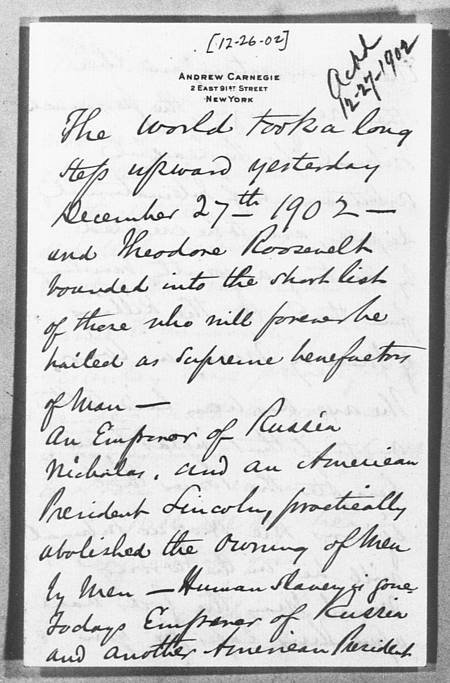 [12-26-02]
Ackd
12-27-1902
ANDREW CARNEGIE
2 EAST 91ST STREET
NEW YORK
The world took a long
step upward yesterday
December 27th 1902 —
and Theodore Roosevelt
bounded into the short list
of those who will forever be
hailed as supreme benefactors
of Man —
An Emperor of Russia
Nicholas, and an American
President Lincoln, practically
abolished the owning of Men
by Men — Human Slavery is gone
Todays Emperor of Russia
and another American President